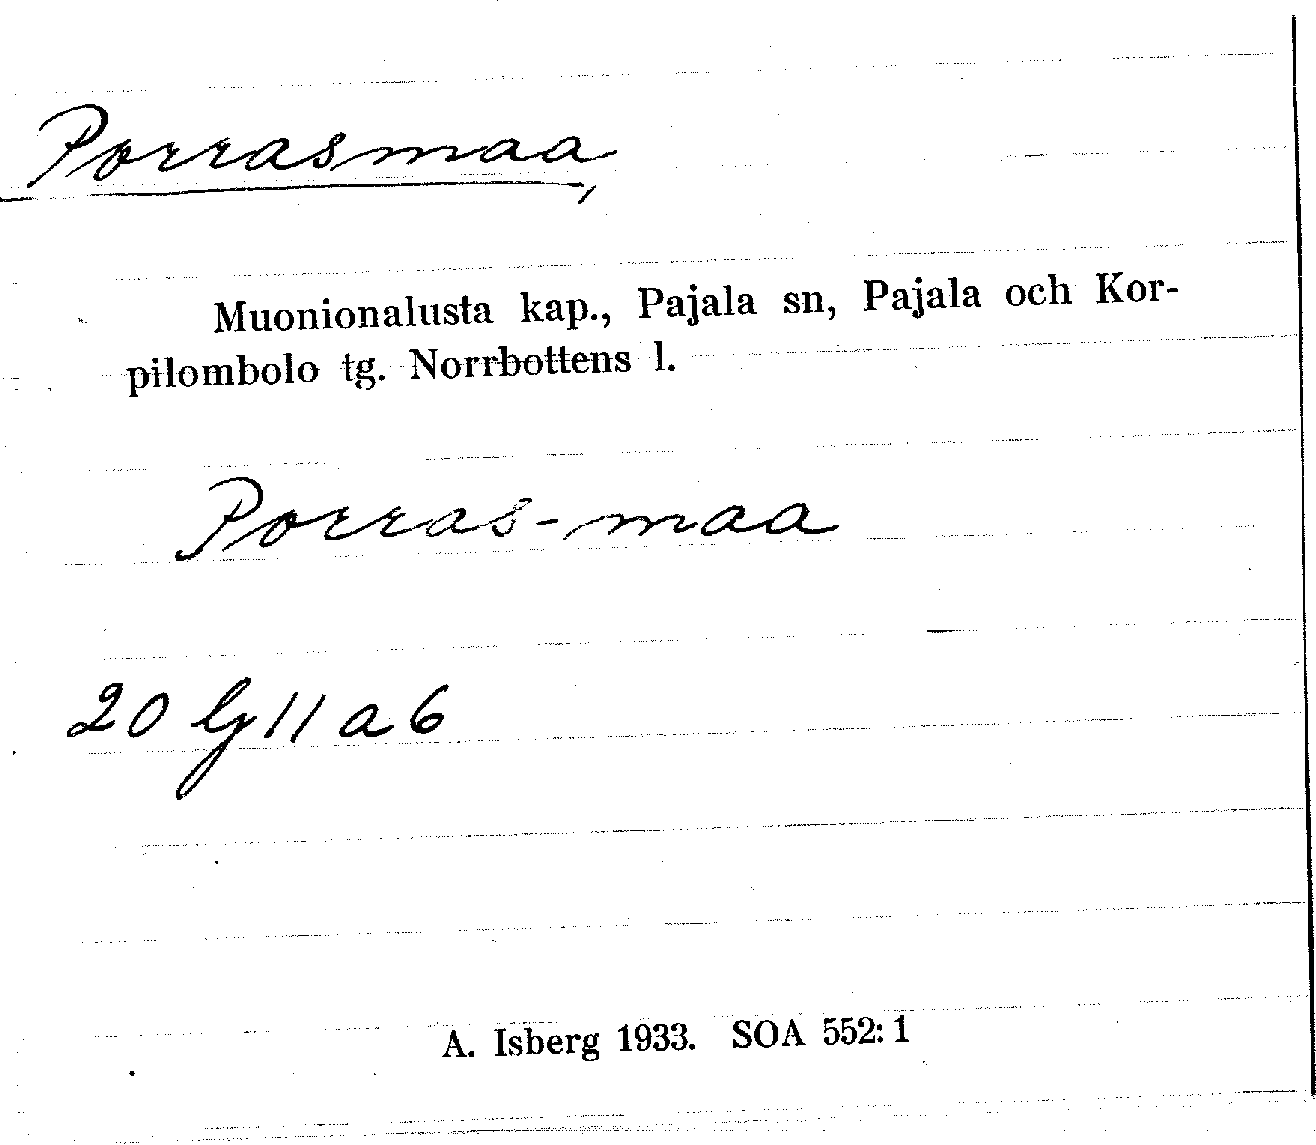 Porrasmaa,
Muonionalusta kap., Pajala sn, Pajala och Kor-
pilombolo tg. Norrbottens l.
Porras-maa
20 G 11 a 6
A. Isberg 1933. SOA 552:1